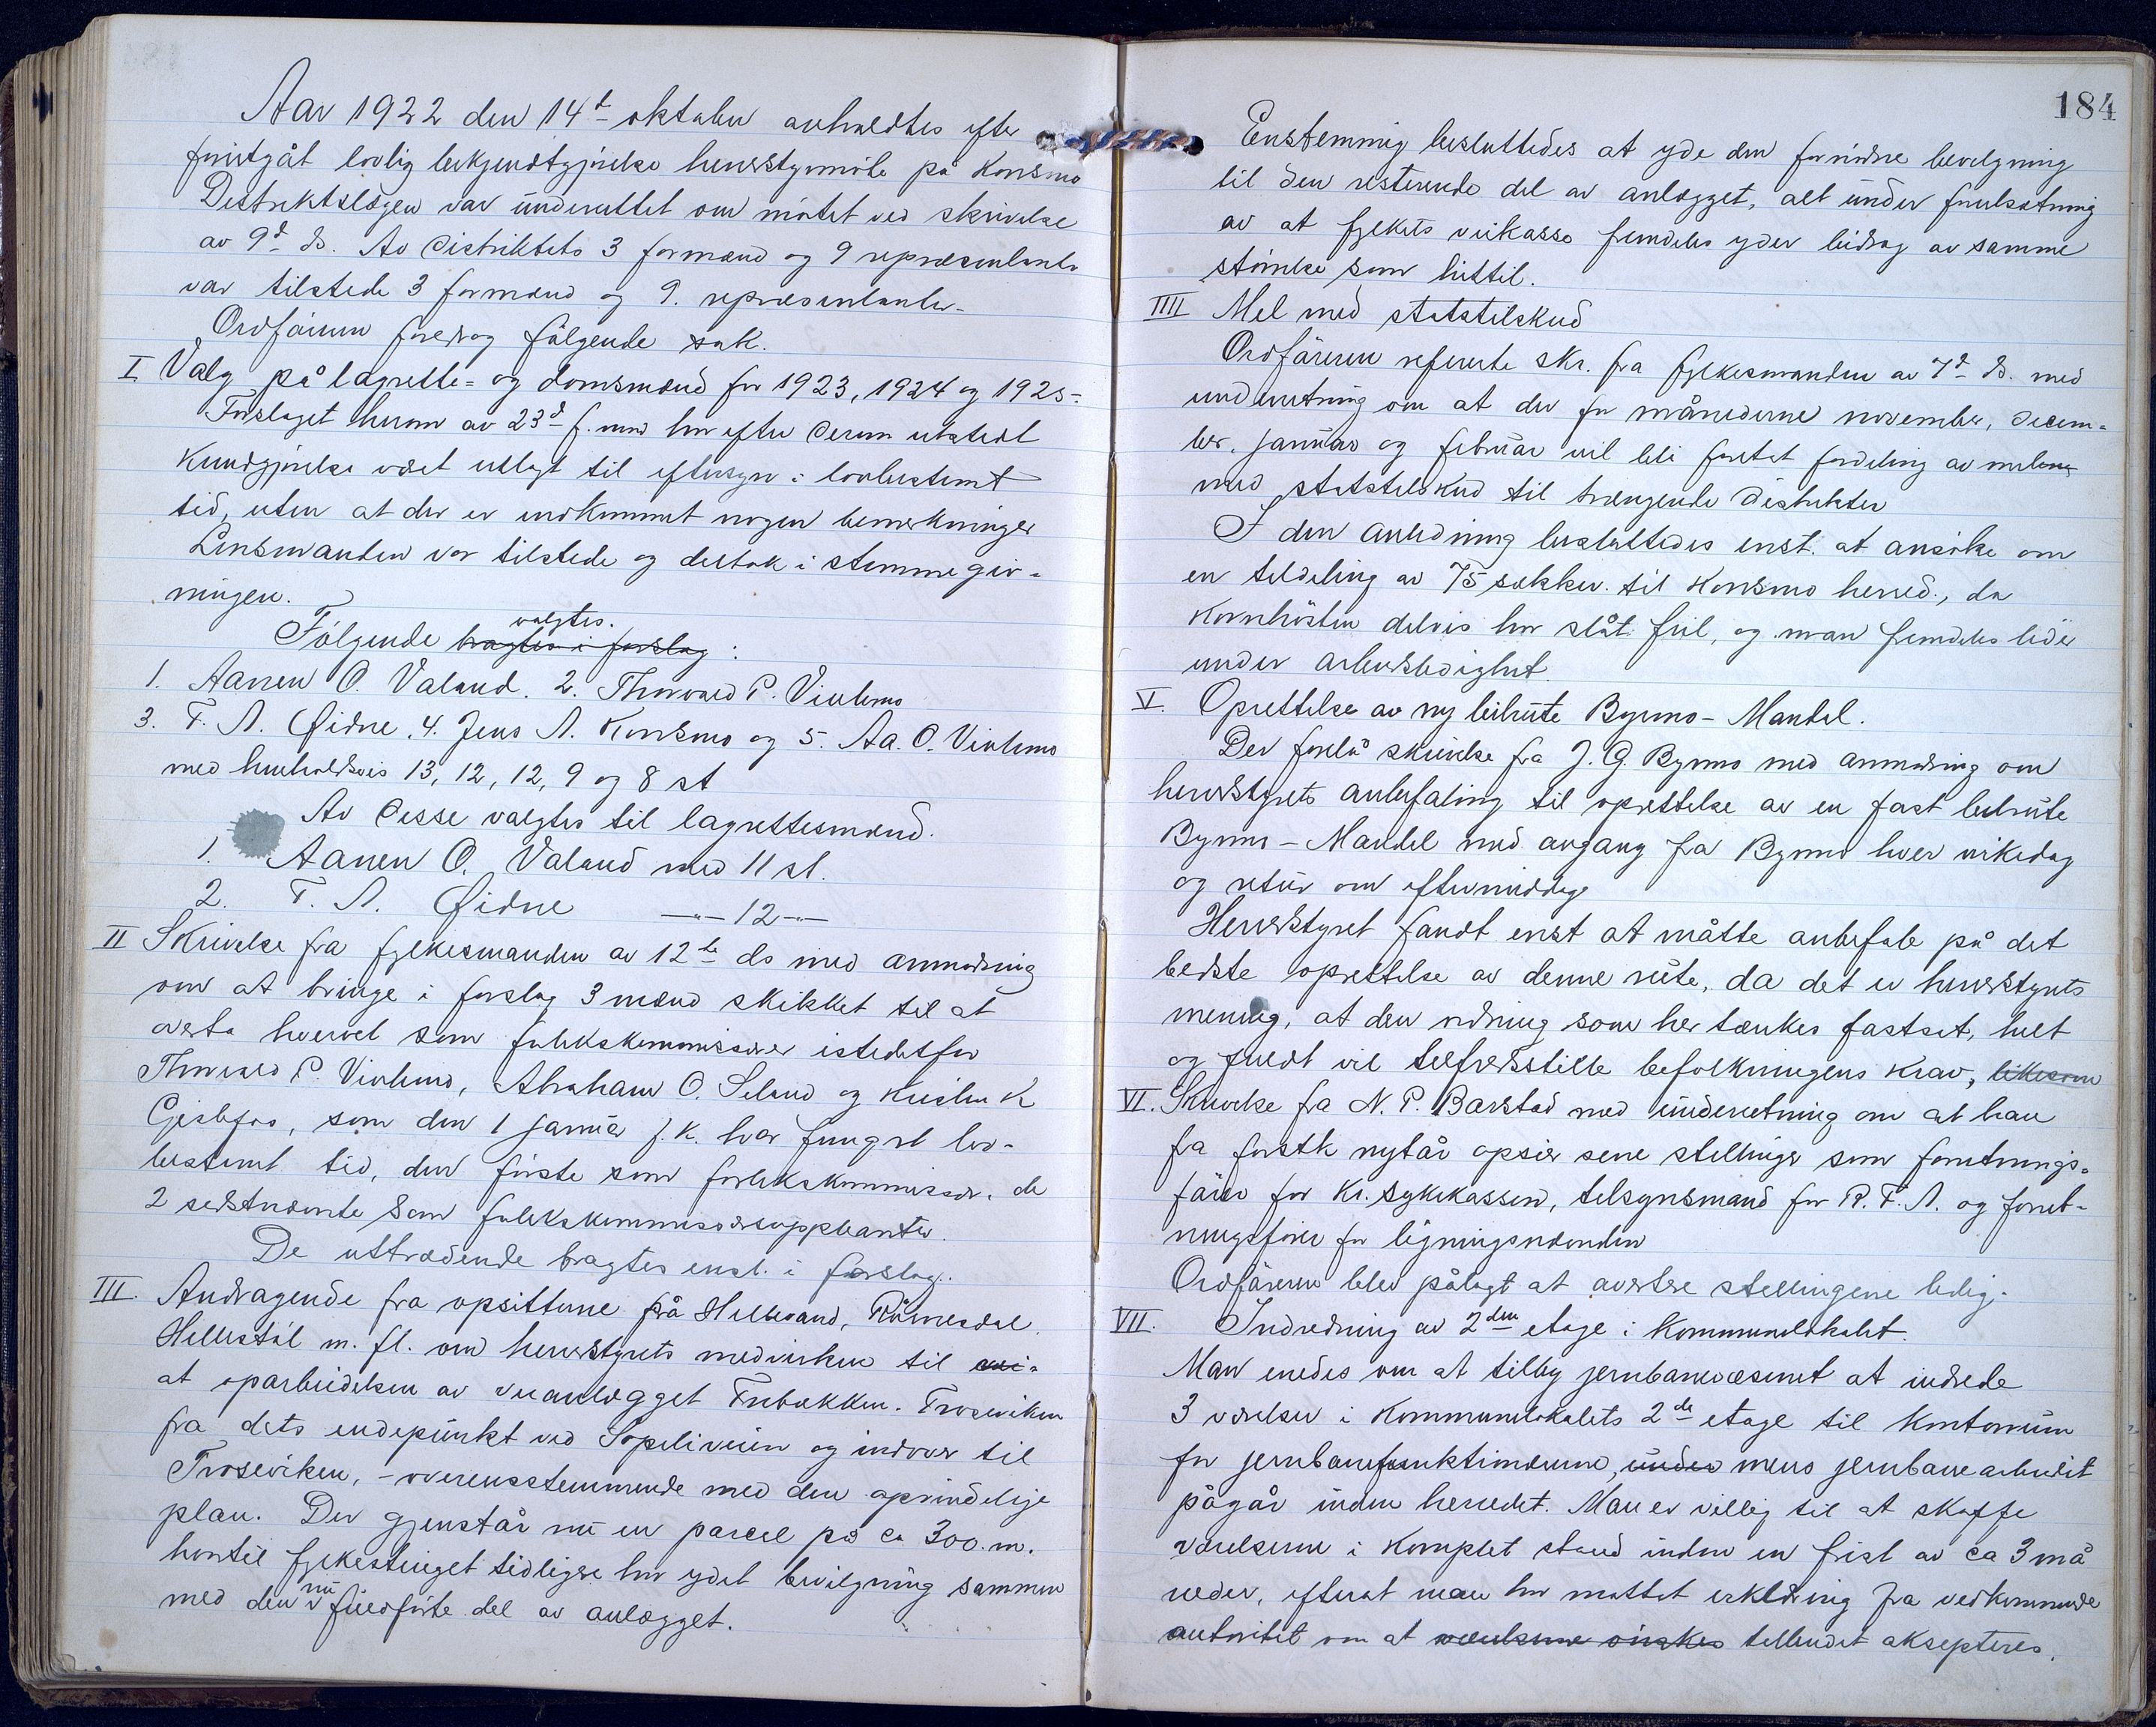 Aar 1922 den 14d oktober avholdtes efter
forutgåt lovlig bekjendtgjörelse herredstyrmöte på Konsmo
Distriktslægen var underrettet om mötet ved skrivelse
av 9d ds. Av distriktets 3 formænd og 9 repræsentanter
var tilstede 3 formænd og 9. repræsentanter.
Ordföreren foredrog fölgende sak.
I Valg på lagrette- og domsmænd for 1923, 1924 og 1925.
Forslaget herom av 23d f. mnd har efter derom utstedt
Kundgjörelse været utlagt til eftersyn i lovbestemt
tid, uten at der er indkommet nogen bemerkninger
Lensmanden var tilstede og deltok i stemmegiv-
ningen.
valgtes.
Fölgende bragtes i forslag:
1. Aanen O. Valand. 2. Thorvald P. Vivlemo
3. T. A. Øidne. 4. Jens A. Konsmo og 5. Aa. O. Vivlemo
med henholdsvis 13, 12, 12, 9 og 8 st
Av disse valgtes til lagrettesmænd.
1. Aanen O. Valand med 11 st.
2. T. A. Øidne —"— 12 —"—
II Skrivelse fra fylkesmanden av 12te ds med anmodning
om at bringe i forslag 3 mænd skikket til at
overta hvervet som forlikskommissær istedetfor
Thorvald P. Vivlemo, Abraham O. Seland og Kristen K
Gislefos, som den 1 januar f. k. har fungert lov-
bestemt tid, den förste som forlikskommissær, de
2 sidstnævnte som forlikskommissærsuppleanter.
De uttrædende bragtes enst. i forslag.
III. Andragende fra opsitterne på Hillesand, Råmesdal,
Hillestöl m. fl. om herredstyrets medvirken til
at oparbeidelsen av veianlægget Tubækken - Troseviken
fra dets endepunkt ved Sopeliveien og indover til
Troseviken, - overensstemmende med den oprindelige
plan. Der gjenstår nu en parcel på ca 300. m.
hvortil fylkestinget tidligere har ydet bevilgning sammen
med den nu fuldförte del av anlægget.
184
Enstemmig besluttedes at yde den fornödne bevilgning
til den resterende del av anlægget, alt under forutsætning
av at fylkets veikasse fremdeles yder bidrag av samme
störrelse som hittil.
IIII Mel med statstilskud
Ordföreren refererte skr. fra fylkesmanden av 7d ds. med
underretning om at der for månederne november, decem-
ber, januar og februar vil bli foretat fordeling av melene
med statstilskud til trængende distrikter
I den anledning besluttedes enst. at ansöke om
en tildeling av 75 sækker til Konsmo herred, da
Kornhösten delvis har slåt feil, og man fremdeles lider
under arbeidsledighet.
V. Oprettelse av ny bilrute Bymo - Mandal.
Der forelå skrivelse fra J. G. Bymo med anmodning om
herredstyrets anbefaling til oprettelse av en fast bilrute
Bymo - Mandal med avgang fra Bymo hver virkedag
og retur om eftermiddag
Herredstyret fandt enst at måtte anbefale på det
bedste oprettelse av denne rute, da det er herredstyrets
mening, at den ordning som her tænkes fastsat, helt
og fuldt vil tilfredsstille befolkningens krav, likesom
VI. Skrivelse fra N. P. Barstad med underretning om at han
fra förstk nytår opsier sine stillinger som forretnings-
förer for Kr. sykekassen, tilsynsmand for R. F. A. og forret-
ningsförer for ligningsnævnden
Ordföreren blev pålagt at avertere stillingene ledig.
VII. Indredning av 2den etage i Kommunelokalet.
Man enedes om at tilby jernbanevæsenet at indrede
3 værelser i Kommunelokalets 2de etage til kontorrum
for jernbanefunktionærerne, under mens jernbanearbeidet
pågår inden herredet. Man er villig til at skaffe
værelserne i komplet stand inden en frist av ca 3 må
neder, efterat man har mottat erklæring fra vedkommende
autoritet om at værelserne önskes tilbudet aksepteres.